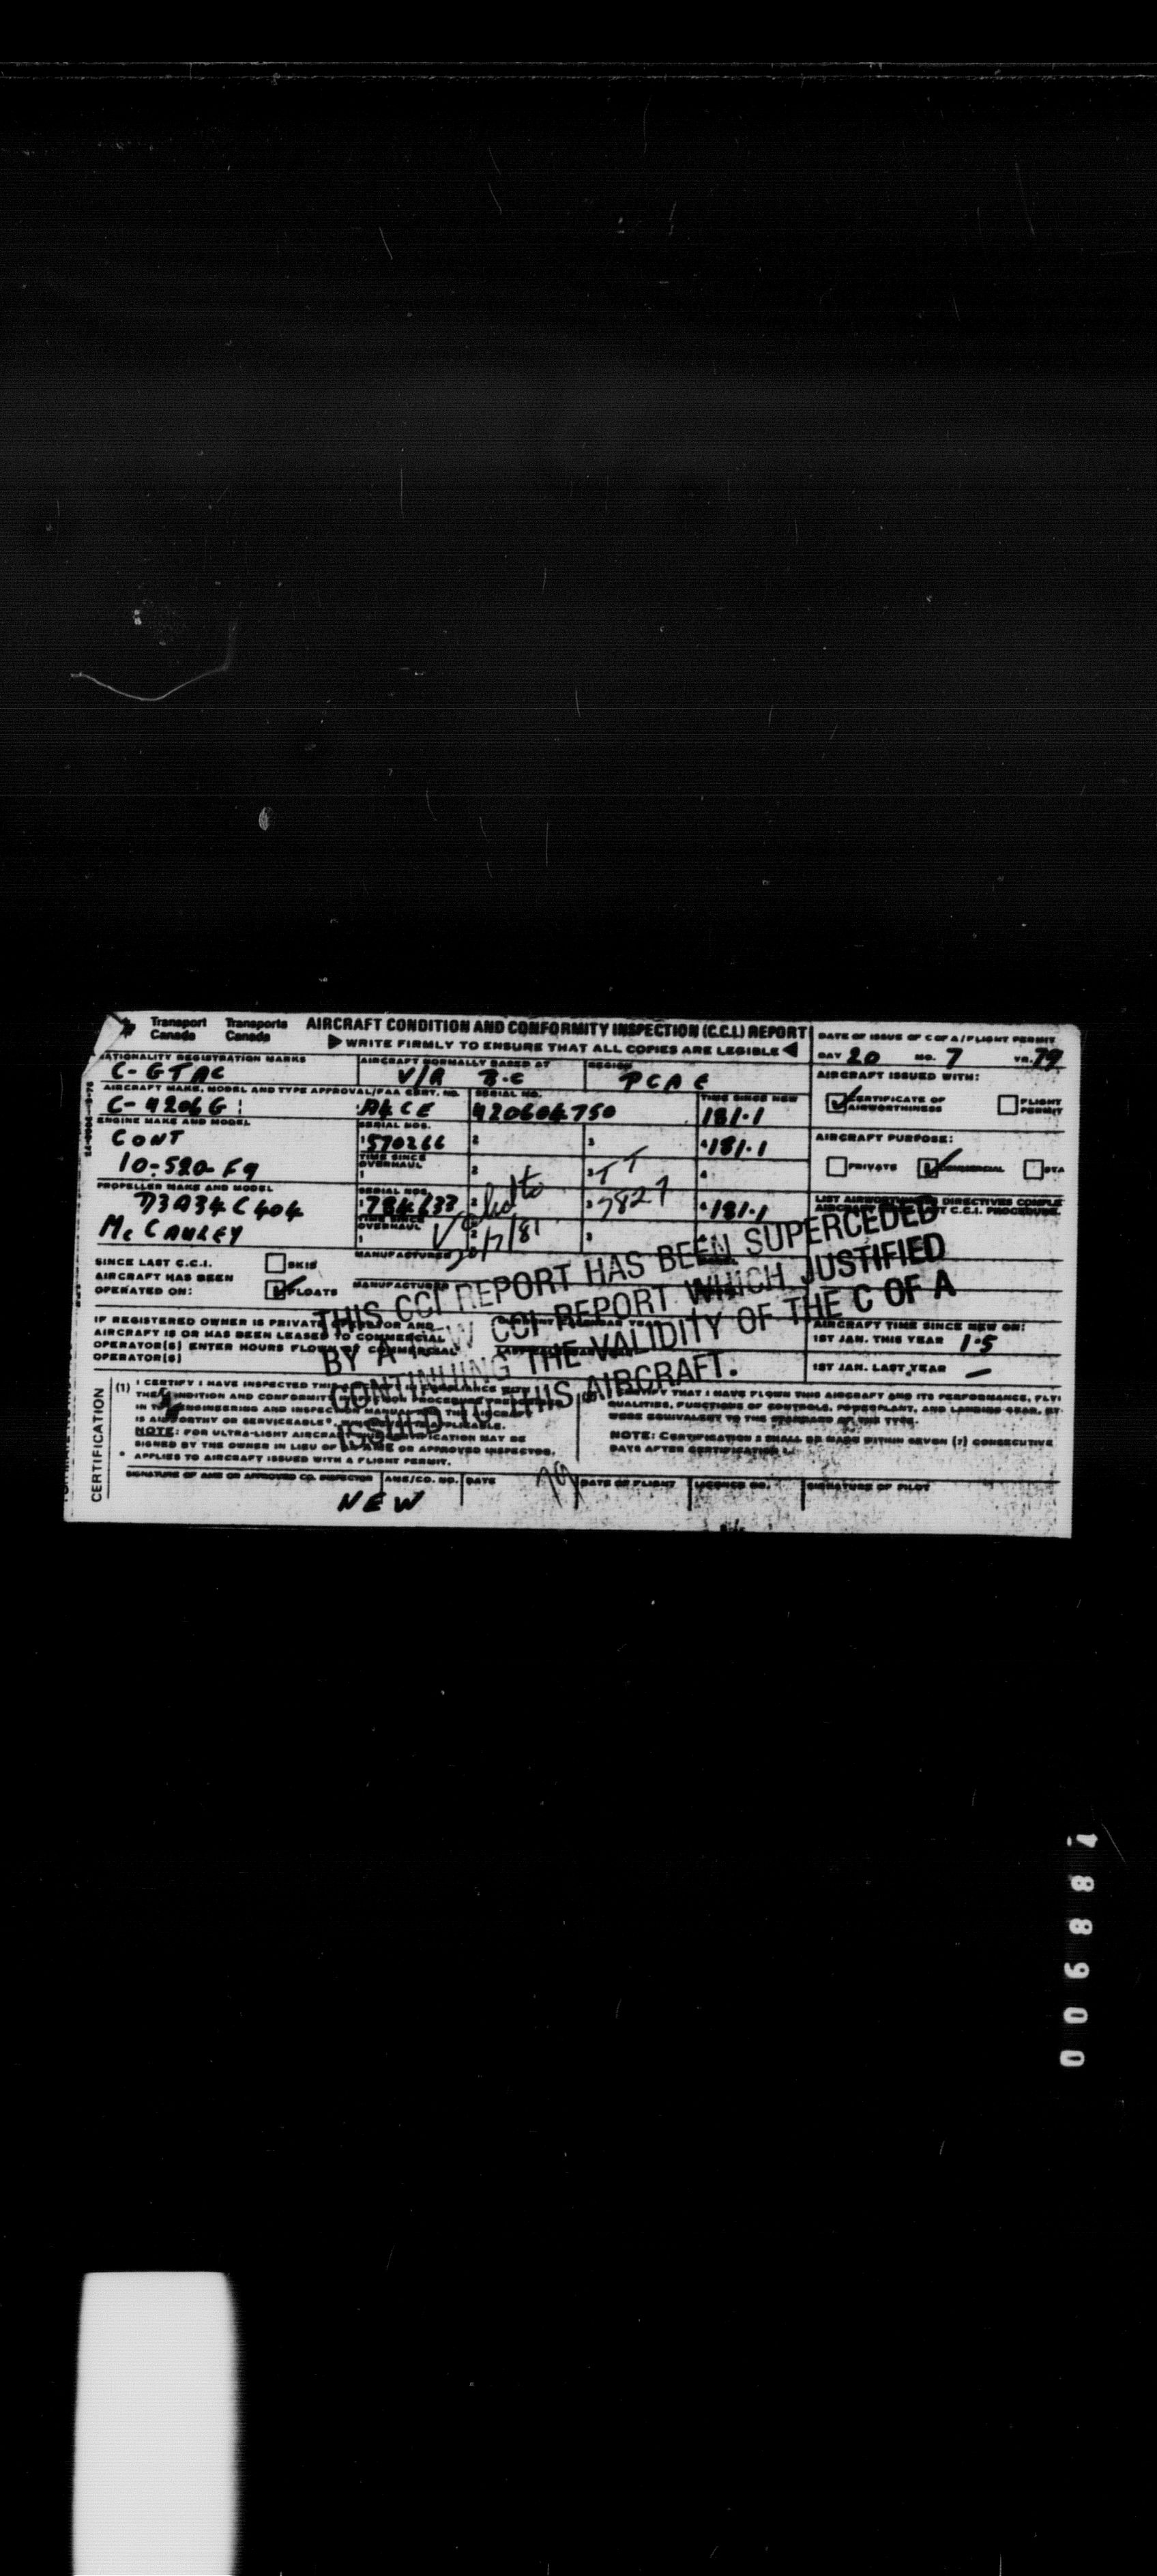 Transport Canada
Transports Canada
AIRCRAFT CONDITION AND CONFORMITY INSPECTION (C.C.I.) REPORT
WRITE FIRMLY TO ENSURE THAT ALL COPIES ARE LEGIBLE
DATE OF ISSUE OF C OF A / FLIGHT PERMIT
DAY 20 MO. 7 YR. 79
NATIONALITY REGISTRATION MARKS
C-GTAC
AIRCRAFT NORMALLY BASED AT
V/R B.C
REGION
AIRCRAFT ISSUED WITH:
CERTIFICATE OF AIRWORTHINESS
FLIGHT PERMIT
AIRCRAFT MAKE, MODEL AND TYPE APPROVAL/FAA CERT. NO.
C-U206G
A4CE
SERIAL NO.
U20604750
TIME SINCE NEW
181.1
ENGINE MAKE AND MODEL
CONT
IO-520-F9
SERIAL NOS.
1 570266
2
3
4 181.1
TIME SINCE OVERHAUL
1
2
3 TT
4
AIRCRAFT PURPOSE:
PRIVATE
COMMERCIAL
PROPELLER MAKE AND MODEL
D3A34C404
McCAULEY
SERIAL NOS.
1 784633
2
3 7827
4 181.1
TIME SINCE OVERHAUL
1
2
3
Valid to
20/7/81
LIST AIRWORTHINESS DIRECTIVES
C.C.I. PROCEDURE.
SINCE LAST C.C.I.
AIRCRAFT HAS BEEN
OPERATED ON:
SKIS
FLOATS
MANUFACTURER
MANUFACTURER
THIS CCI REPORT HAS BEEN SUPERCEDED
BY A NEW CCI REPORT WHICH JUSTIFIED
CONTINUING THE VALIDITY OF THE C OF A
ISSUED THIS AIRCRAFT.
IF REGISTERED OWNER IS PRIVATE OPERATOR AND
AIRCRAFT IS OR HAS BEEN LEASED TO COMMERCIAL
OPERATOR(S) ENTER HOURS FLOWN BY COMMERCIAL
OPERATOR(S)
AIRCRAFT TIME SINCE NEW ON:
1ST JAN. THIS YEAR 1.5
1ST JAN. LAST YEAR —
CERTIFICATION
(1) I CERTIFY I HAVE INSPECTED THIS
THE CONDITION AND CONFORMITY INSPECTION PROCEDURE
IN THE ENGINEERING AND INSPECTION MANUAL THE AIRCRAFT
IS AIRWORTHY OR SERVICEABLE*,
NOTE: FOR ULTRA-LIGHT AIRCRAFT CERTIFICATION MAY BE
SIGNED BY THE OWNER IN LIEU OF AME OR APPROVED INSPECTOR.
* APPLIES TO AIRCRAFT ISSUED WITH A FLIGHT PERMIT.
CERTIFY THAT I HAVE FLOWN THIS AIRCRAFT AND ITS PERFORMANCE,
QUALITIES, FUNCTIONS OF CONTROLS, POWERPLANT, AND LANDING GEAR,
WERE EQUIVALENT TO THE STANDARD OF THE TYPE.
NOTE: CERTIFICATION 2 SHALL BE MADE WITHIN SEVEN (7) CONSECUTIVE
DAYS AFTER CERTIFICATION 1.
SIGNATURE OF AME OR APPROVED CO. INSPECTOR
AME/CO. NO.
DATE
DATE OF FLIGHT
LICENCE NO.
SIGNATURE OF PILOT
NEW
006884